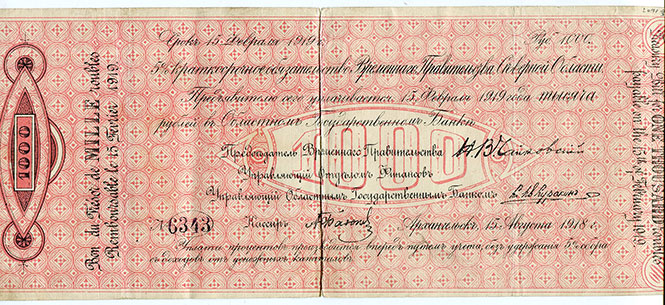 Bon du Trésor de MILLE roubles
Remboursable le 15 Février 1919
1000
Срокъ 15 Февраля 1919 г.
Руб. 1000.
5% Краткосрочное обязательство Временнаго Правительства Сѣверной Области
Предъявителю сего уплачивается 15 Февраля 1919 года тысяча
рублей въ Областномъ Государственномъ Банкѣ
1000
Предсѣдатель Временнаго Правительства Н. В. Чайковскій
Управляющій Отдѣломъ Финансовъ
Управляющій Областнымъ Государственнымъ Банкомъ
6343
Кассиръ
Архангельскъ 15 Августа 1918 г.
Уплата процентовъ производится впередъ путемъ учета, безъ удержанія 5% сбора
съ доходовъ отъ денежныхъ капиталовъ.
Bill for ONE THOUSAND roubles
payable on the 15th of February 1919